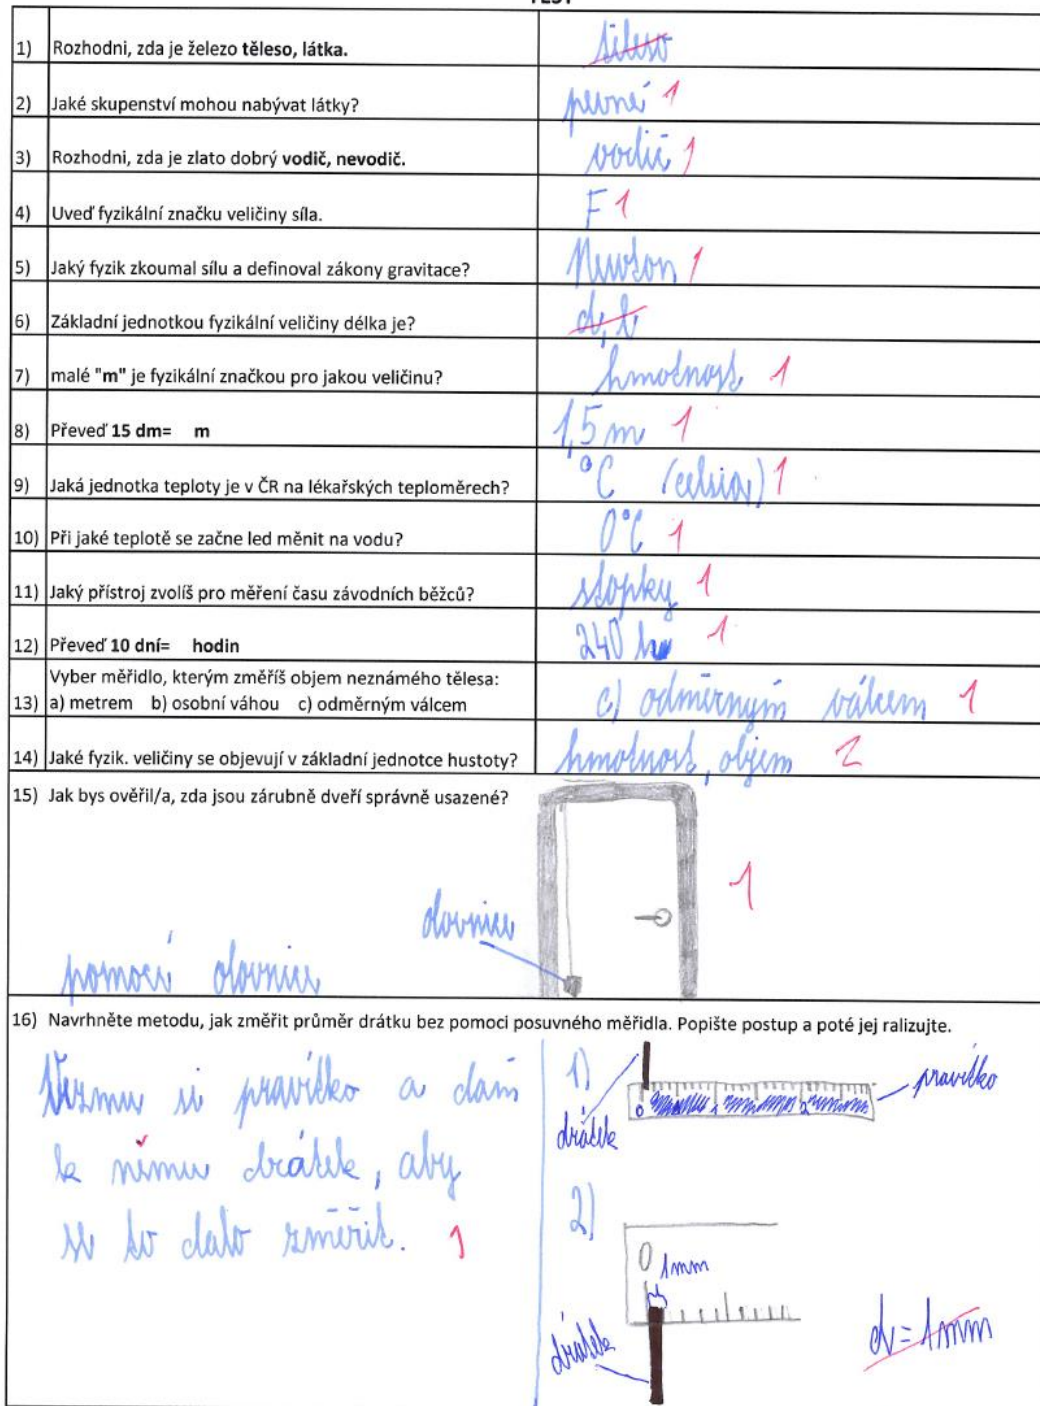 TEST
1) Rozhodni, zda je železo těleso, látka. těleso
2) Jaké skupenství mohou nabývat látky? pevné 1
3) Rozhodni, zda je zlato dobrý vodič, nevodič. vodič 1
4) Uveď fyzikální značku veličiny síla. F 1
5) Jaký fyzik zkoumal sílu a definoval zákony gravitace? Newton 1
6) Základní jednotkou fyzikální veličiny délka je? d, l
7) malé "m" je fyzikální značkou pro jakou veličinu? hmotnost 1
8) Převeď 15 dm= m 1,5 m 1
9) Jaká jednotka teploty je v ČR na lékařských teploměrech? °C (celsia) 1
10) Při jaké teplotě se začne led měnit na vodu? 0°C 1
11) Jaký přístroj zvolíš pro měření času závodních běžců? stopky 1
12) Převeď 10 dní= hodin 240 h 1
Vyber měřidlo, kterým změříš objem neznámého tělesa:
13) a) metrem b) osobní váhou c) odměrným válcem c) odměrným válcem 1
14) Jaké fyzik. veličiny se objevují v základní jednotce hustoty? hmotnost, objem 2
15) Jak bys ověřil/a, zda jsou zárubně dveří správně usazené?
1
olovnice
pomocí olovnice
16) Navrhněte metodu, jak změřit průměr drátku bez pomoci posuvného měřidla. Popište postup a poté jej ralizujte.
Vezmu si pravítko a dám
k němu drátek, aby
se to dalo změřit. 1
1)
pravítko
0 1 2
drátek
2)
0 1mm
drátek
d = 1mm